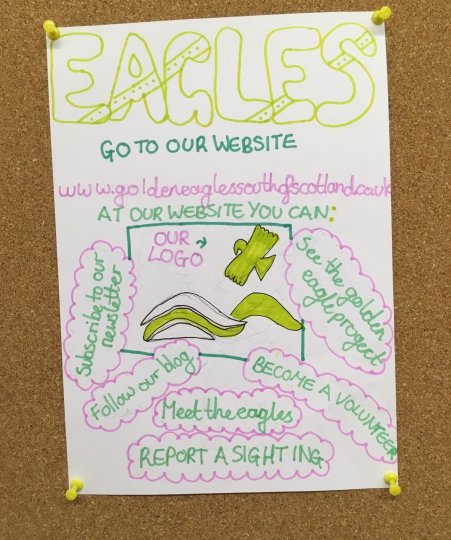 EAGLES
GO TO OUR WEBSITE
www.goldeneaglessouthofscotland.co.uk
AT OUR WEBSITE YOU CAN:
OUR
LOGO
Subscribe to our
newsletter
See the golden
eagle progect
Follow our blog
BECOME A VOLUNTEER
Meet the eagles
REPORT A SIGHTING